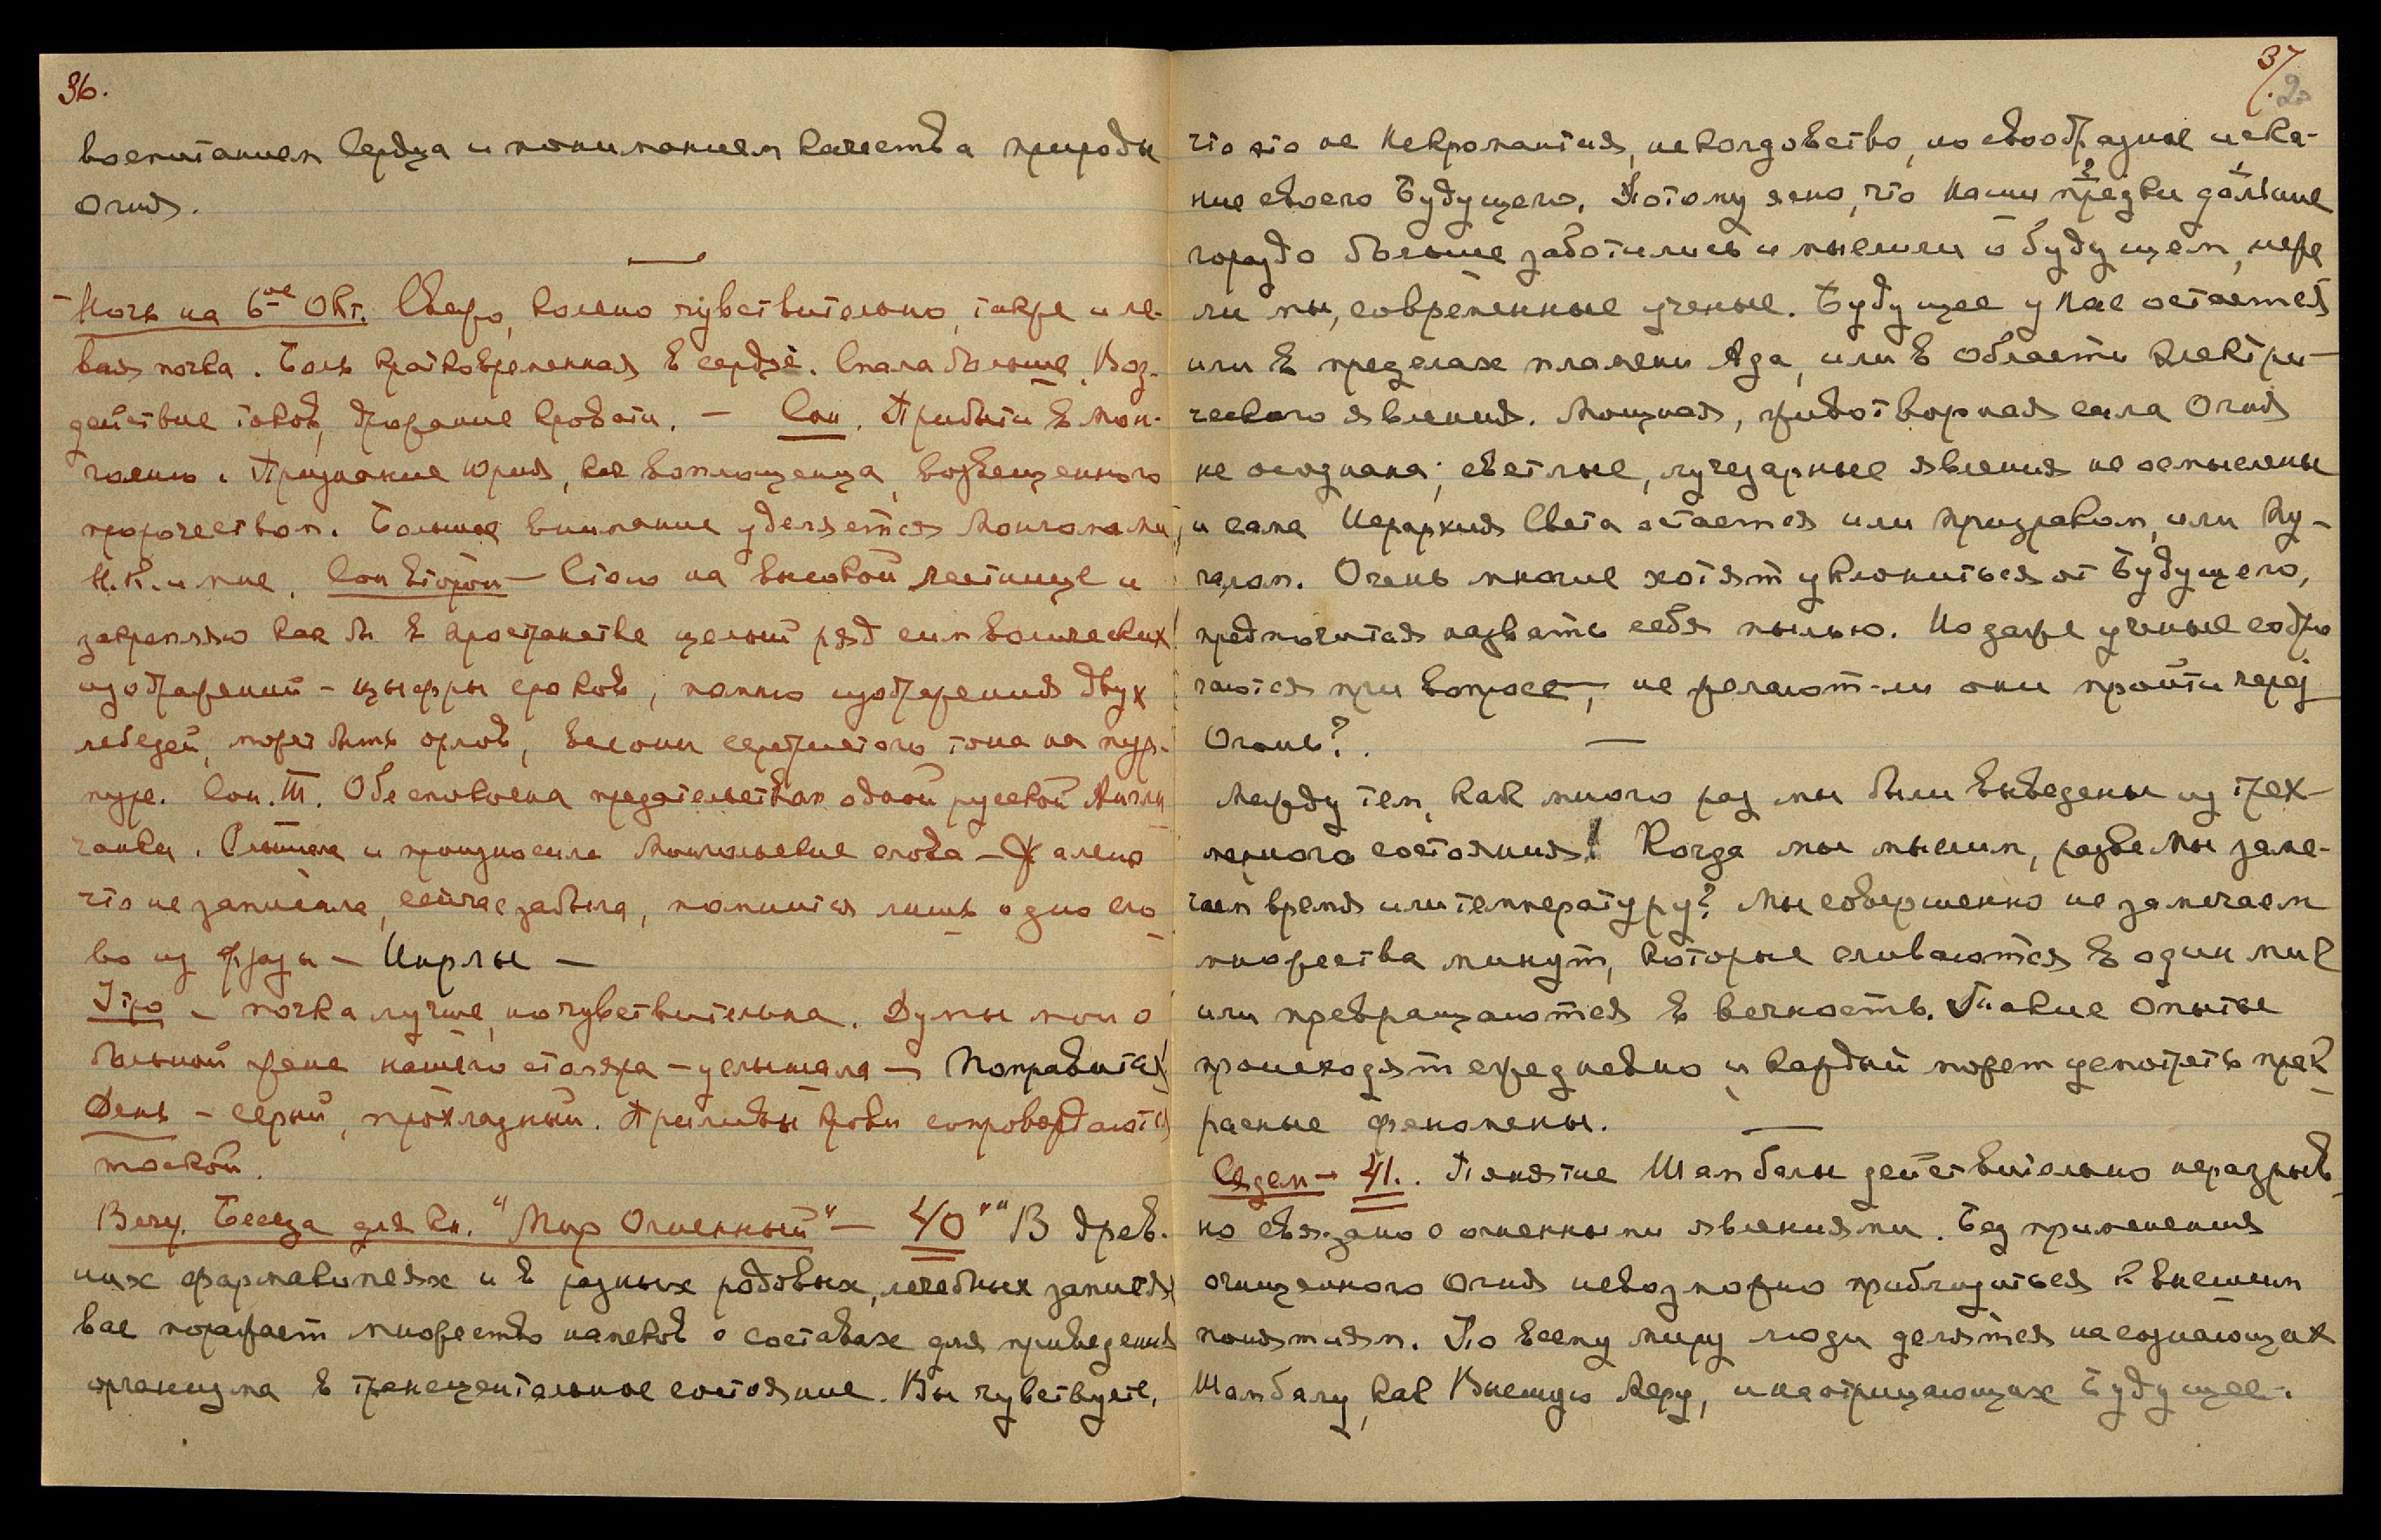 36.
воспитанием Сердца и пониманием качества природы
Огня.
Ночь на 6-ое Окт. Свежо, колено чувствительно, также и ле-
вая почка. Боль кратковременная в сердце. Спала больше. Воз-
действие токов, дрожание кровати. — Сон. Прибыти в Мон-
голию. Признание Юрия, как воплощенца, возвещенного
пророчеством. Большое внимание уделяется Монголами
Н.К. и мне. Сон второй — Стою на высокой лестнице и
закрепляю как бы в пространстве целый ряд символических
изображений — цыфры сроков, помню изображения двух
лебедей, может быть орлов, весоны серебристого тона на пур-
пуре. Сон. III. Обеспокоена предательством одной русской Англи
чанки. Слышала и произносила Монгольские слова — Жалею
что не записала, сейчас забыла, помнится лишь одно сло
во из фразы — Инрлы —
Утро — почка лучше, но чувствительна. Думы мои о
больной жене нашего столяра — услышала — Поправится!
День — серый, прохладный. Приливы крови сопровождаются
тоской.
Веч. Беседа для кн. "Мир Огненный" — 40 "" В древ-
них фармакопеях и в разных родовых, лечебных записях
вас поражает множество намеков о составах для приведения
организма в трансцентальное состояние. Вы чувствуете,
37.
20
что это не Некромантия, не колдовство, но своообразное иска-
ние своего Будущего. Потому ясно, что наши предки дальние
гораздо больше заботились и мыслили о будущем, неже
ли мы, современные ученые. Будущее у нас остается
или в пределах пламени Ада, или в области электри-
ческого явления. Мощная, животворная сила Огня
не осознана; светлые, лучезарные явления не осмыслены
и сама Иерархия Света остается или призраком, или пу-
галом. Очень многие хотят уклониться от Будущего,
предпочитая назвать себя пылью. Но даже ученые содро
гаются при вопросе, — не желают-ли они пройти через
Огонь?.
Между тем, как много раз мы были выведены из трех-
мерного состояния! Когда мы мыслим, разве мы заме-
чаем время или температуру? Мы совершенно не замечаем
множества минут, которые сливаются в один миг
или превращаются в вечность. Такие опыты
происходят ежедневно и каждый может усмотреть прек-
расные феномены.
Сядем — 41. . Понятие Шамбалы действительно неразрыв-
но связано с огненными явлениями. Без применения
очищенного Огня невозможно приблизиться к высшим
понятиям. По всему миру люди делятся на сознающих
Шамбалу, как Высшую Меру, и на отрицающих Будущее.